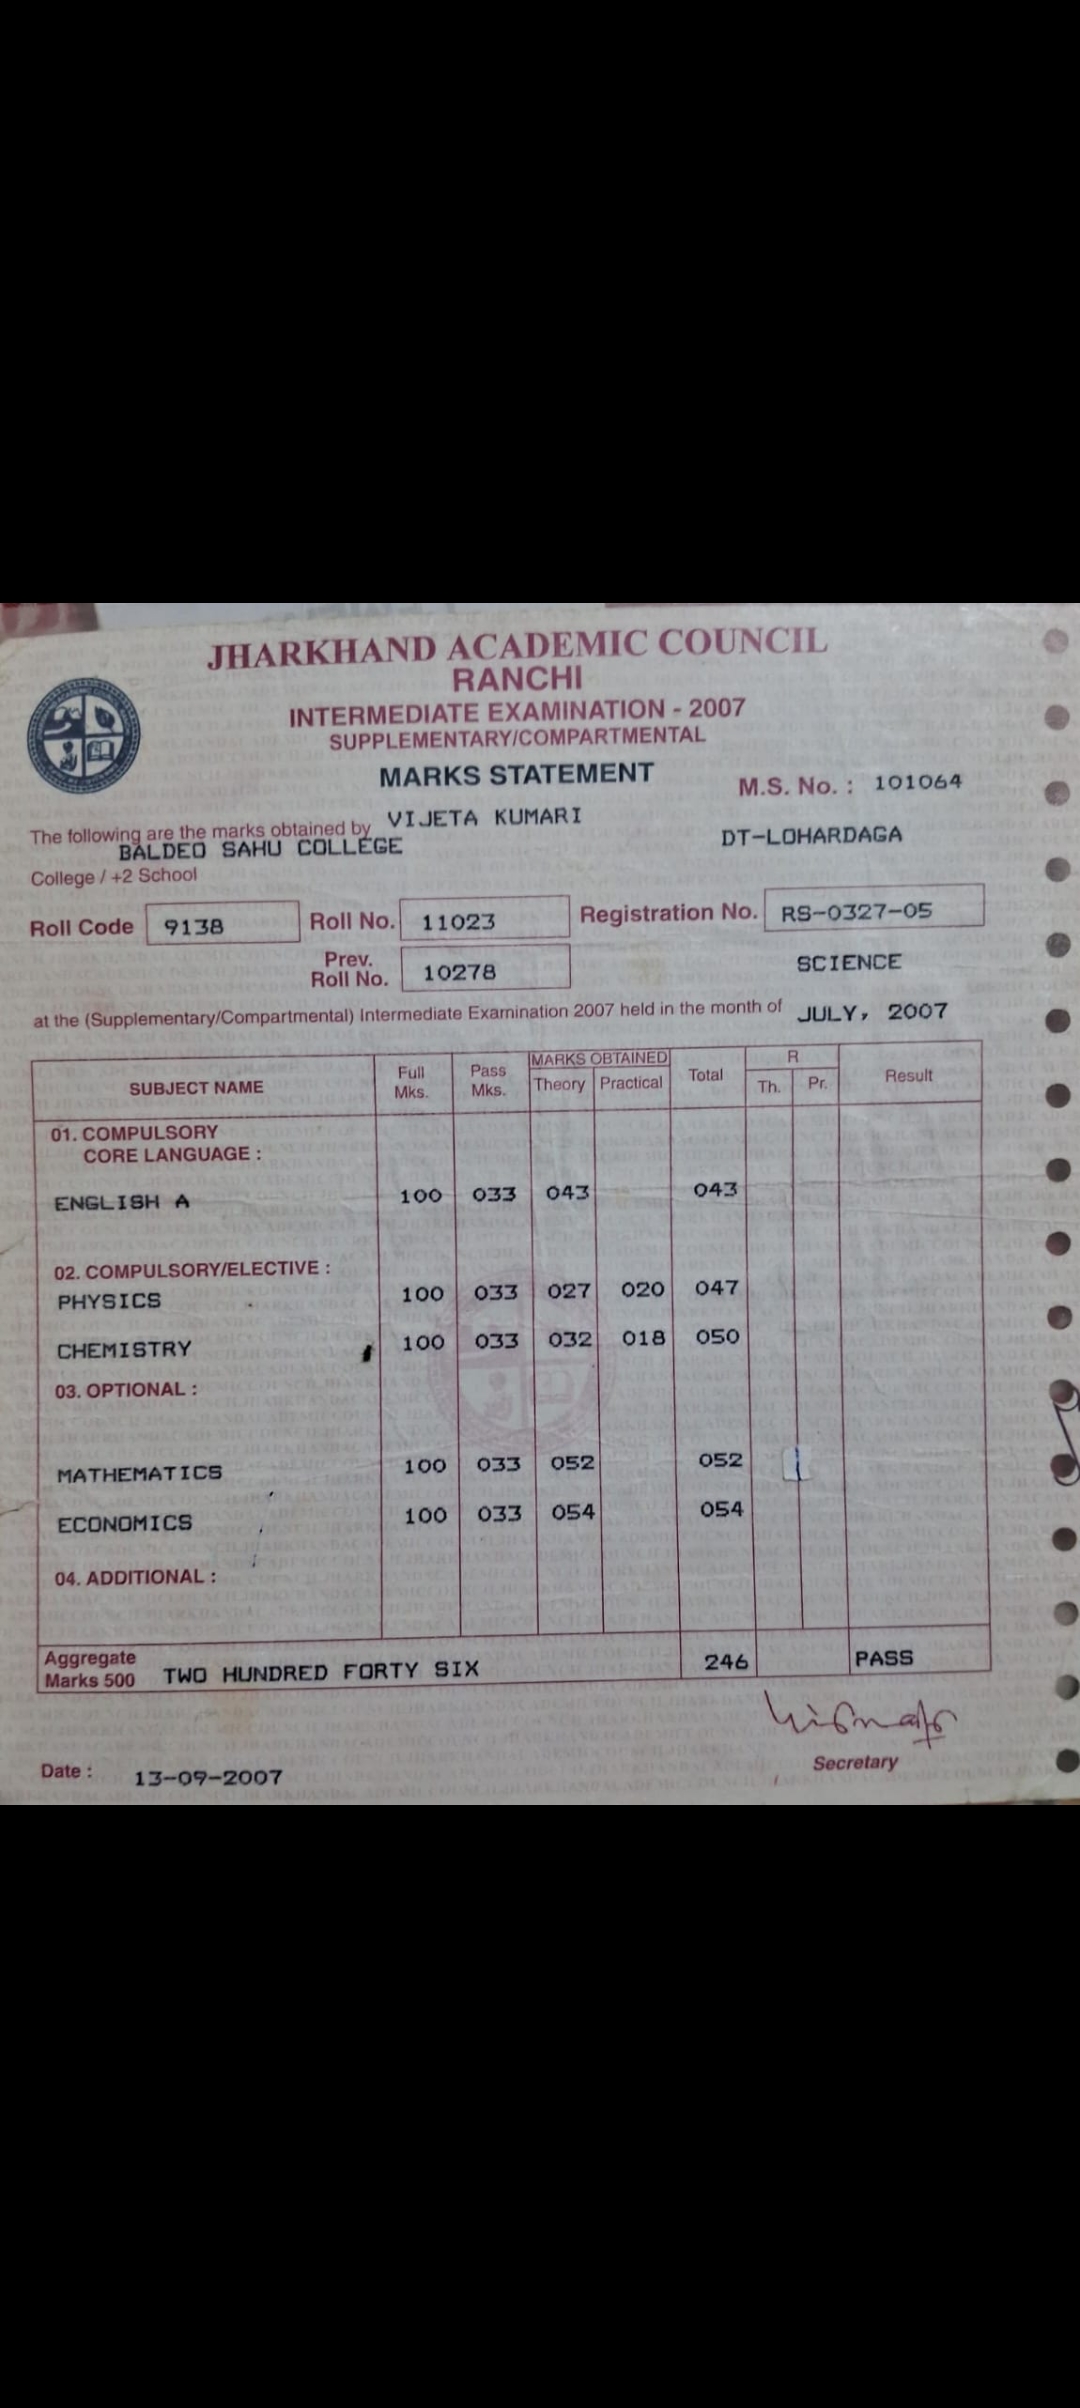 JHARKHAND ACADEMIC COUNCIL
RANCHI
INTERMEDIATE EXAMINATION - 2007
SUPPLEMENTARY/COMPARTMENTAL
MARKS STATEMENT
M.S. No. : 101064
The following are the marks obtained by VIJETA KUMARI
BALDEO SAHU COLLEGE DT-LOHARDAGA
College / +2 School
Roll Code 9138 Roll No. 11023 Registration No. RS-0327-05
Prev. Roll No. 10278 SCIENCE
at the (Supplementary/Compartmental) Intermediate Examination 2007 held in the month of JULY, 2007
SUBJECT NAME Full Mks. Pass Mks. MARKS OBTAINED Theory Practical Total R Th. Pr. Result
01. COMPULSORY
CORE LANGUAGE :
ENGLISH A 100 033 043 043
02. COMPULSORY/ELECTIVE :
PHYSICS 100 033 027 020 047
CHEMISTRY 100 033 032 018 050
03. OPTIONAL :
MATHEMATICS 100 033 052 052
ECONOMICS 100 033 054 054
04. ADDITIONAL :
Aggregate
Marks 500 TWO HUNDRED FORTY SIX 246 PASS
Secretary
Date : 13-09-2007